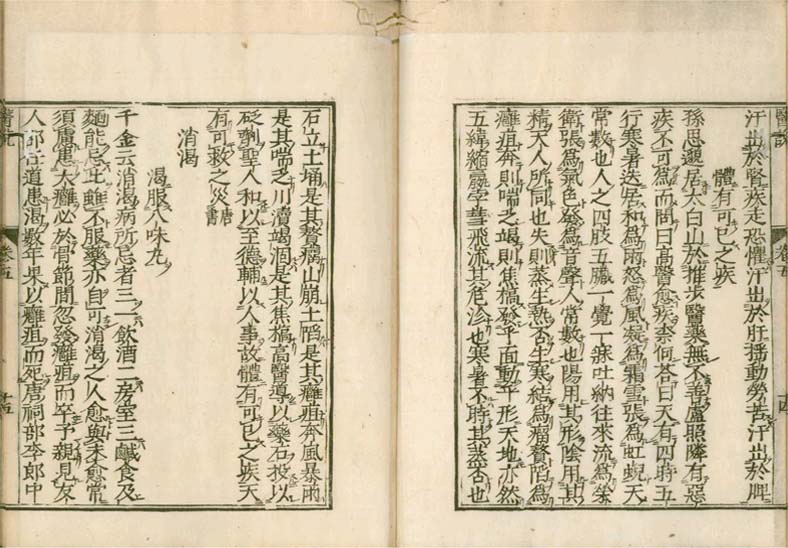 醫說 卷五 十四
汗出於腎疾走恐懼汗出於肝揺動勞苦汗出於脾
體有可已之疾
孫思邈居太白山於推歩醫藥無不善盧照隣有惡
疾不可為而問曰高醫愈疾柰何答曰天有四時五
行寒暑迭居和為雨怒為風凝為霜雪張為虹蜺天
常數也人之四肢五臓一覺一寐吐納往來流為榮
衛張為氣色發為音聲人常數也陽用其形陰用其
精天人所同也失則蒸生熱否生寒結為瘤贅陷為
癰疽奔則喘乏竭則焦槁發乎面動乎形天地亦然
五緯縮贏孛彗飛流其危沴也寒暑不時其蒸否也
石立土埇是其贅瘤山崩土陷是其癰疽奔風暴雨
是其喘乏川瀆竭涸是其焦槁高醫導以藥石投以
砭劑聖人和以至德輔以人事故體有可已之疾天
有可救之災唐書
消渴
渴服八味丸
千金云消渴病所忌者三一飲酒二房室三鹹食及
麵能忌此雖不服藥亦自可消渴之人愈與未愈常
須慮患大癰必於骨節間忽發癰疽而卒予親見友
人邵任道患渴數年果以癰疽而死唐祠部李郎中
醫說 卷五 十五